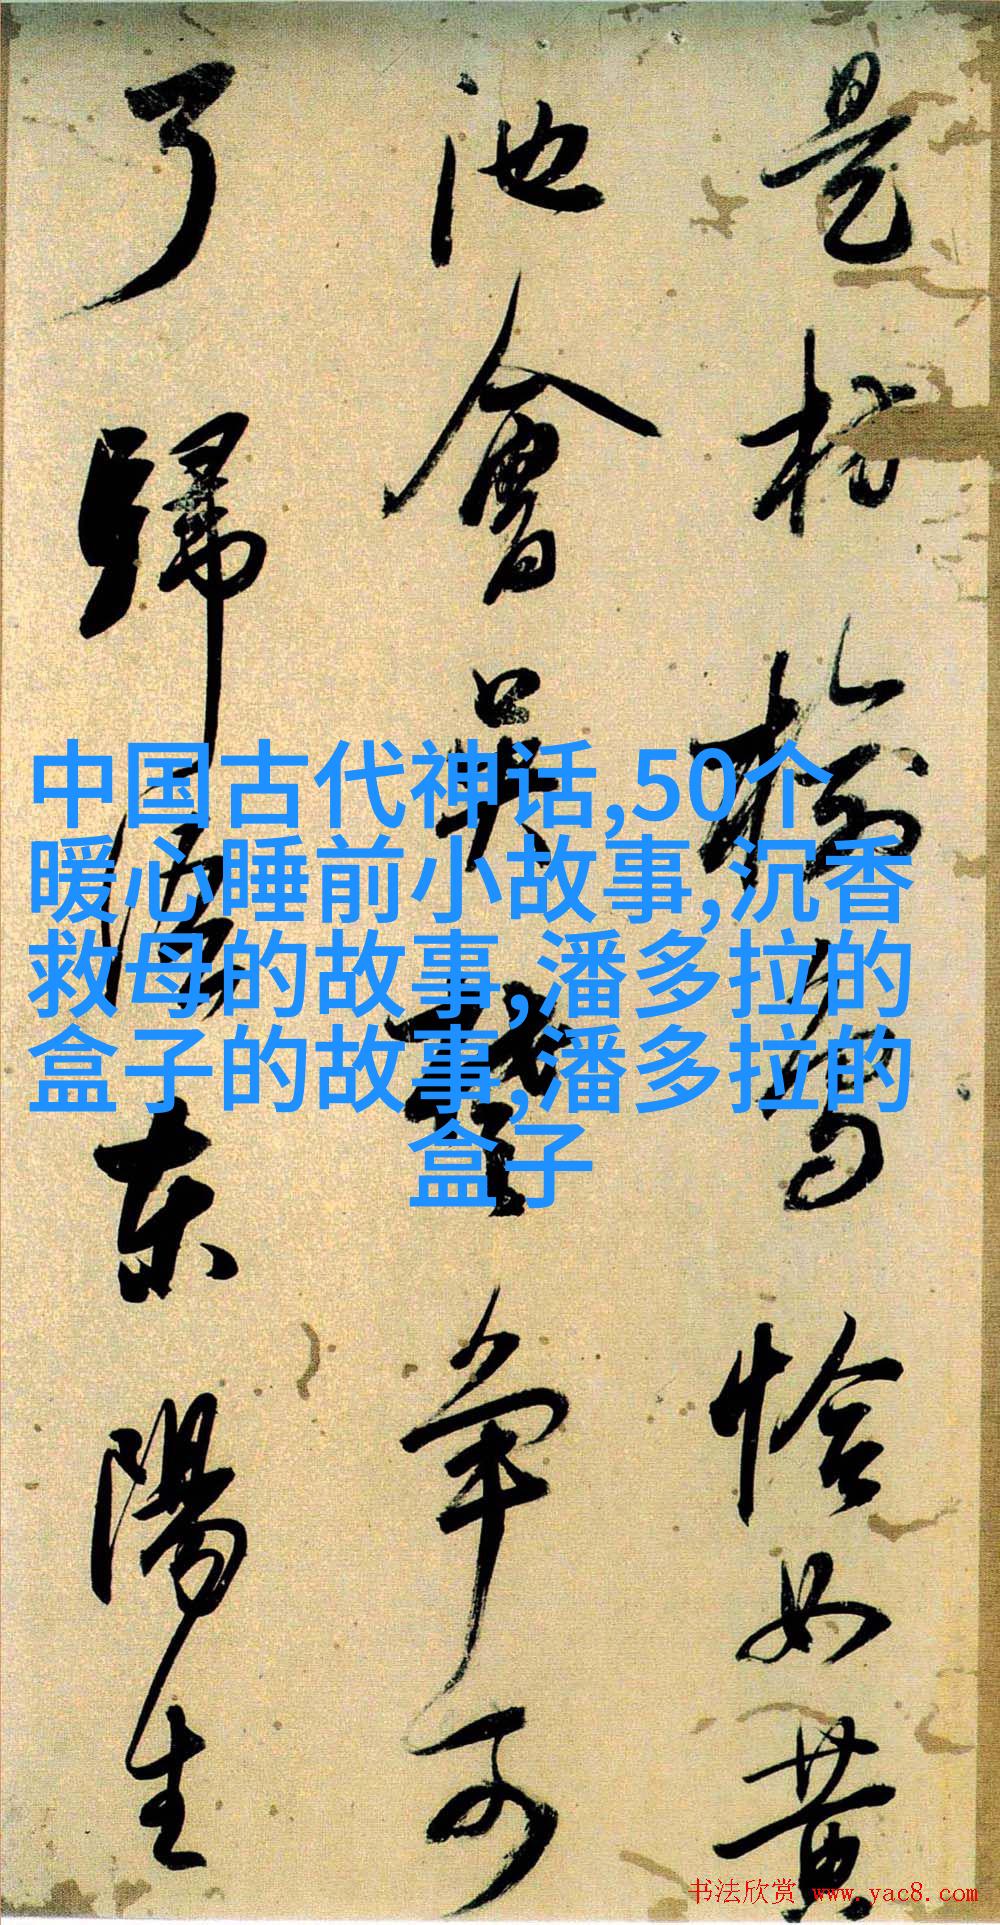 是枋榆焉恰如黄
池會吴
争可
了歸
东陽生
中国古代神话,50个
暖心睡前小故事,沉香
救母的故事,潘多拉的
盒子的故事,潘多拉的
盒子
书法欣赏 www.yac8.com